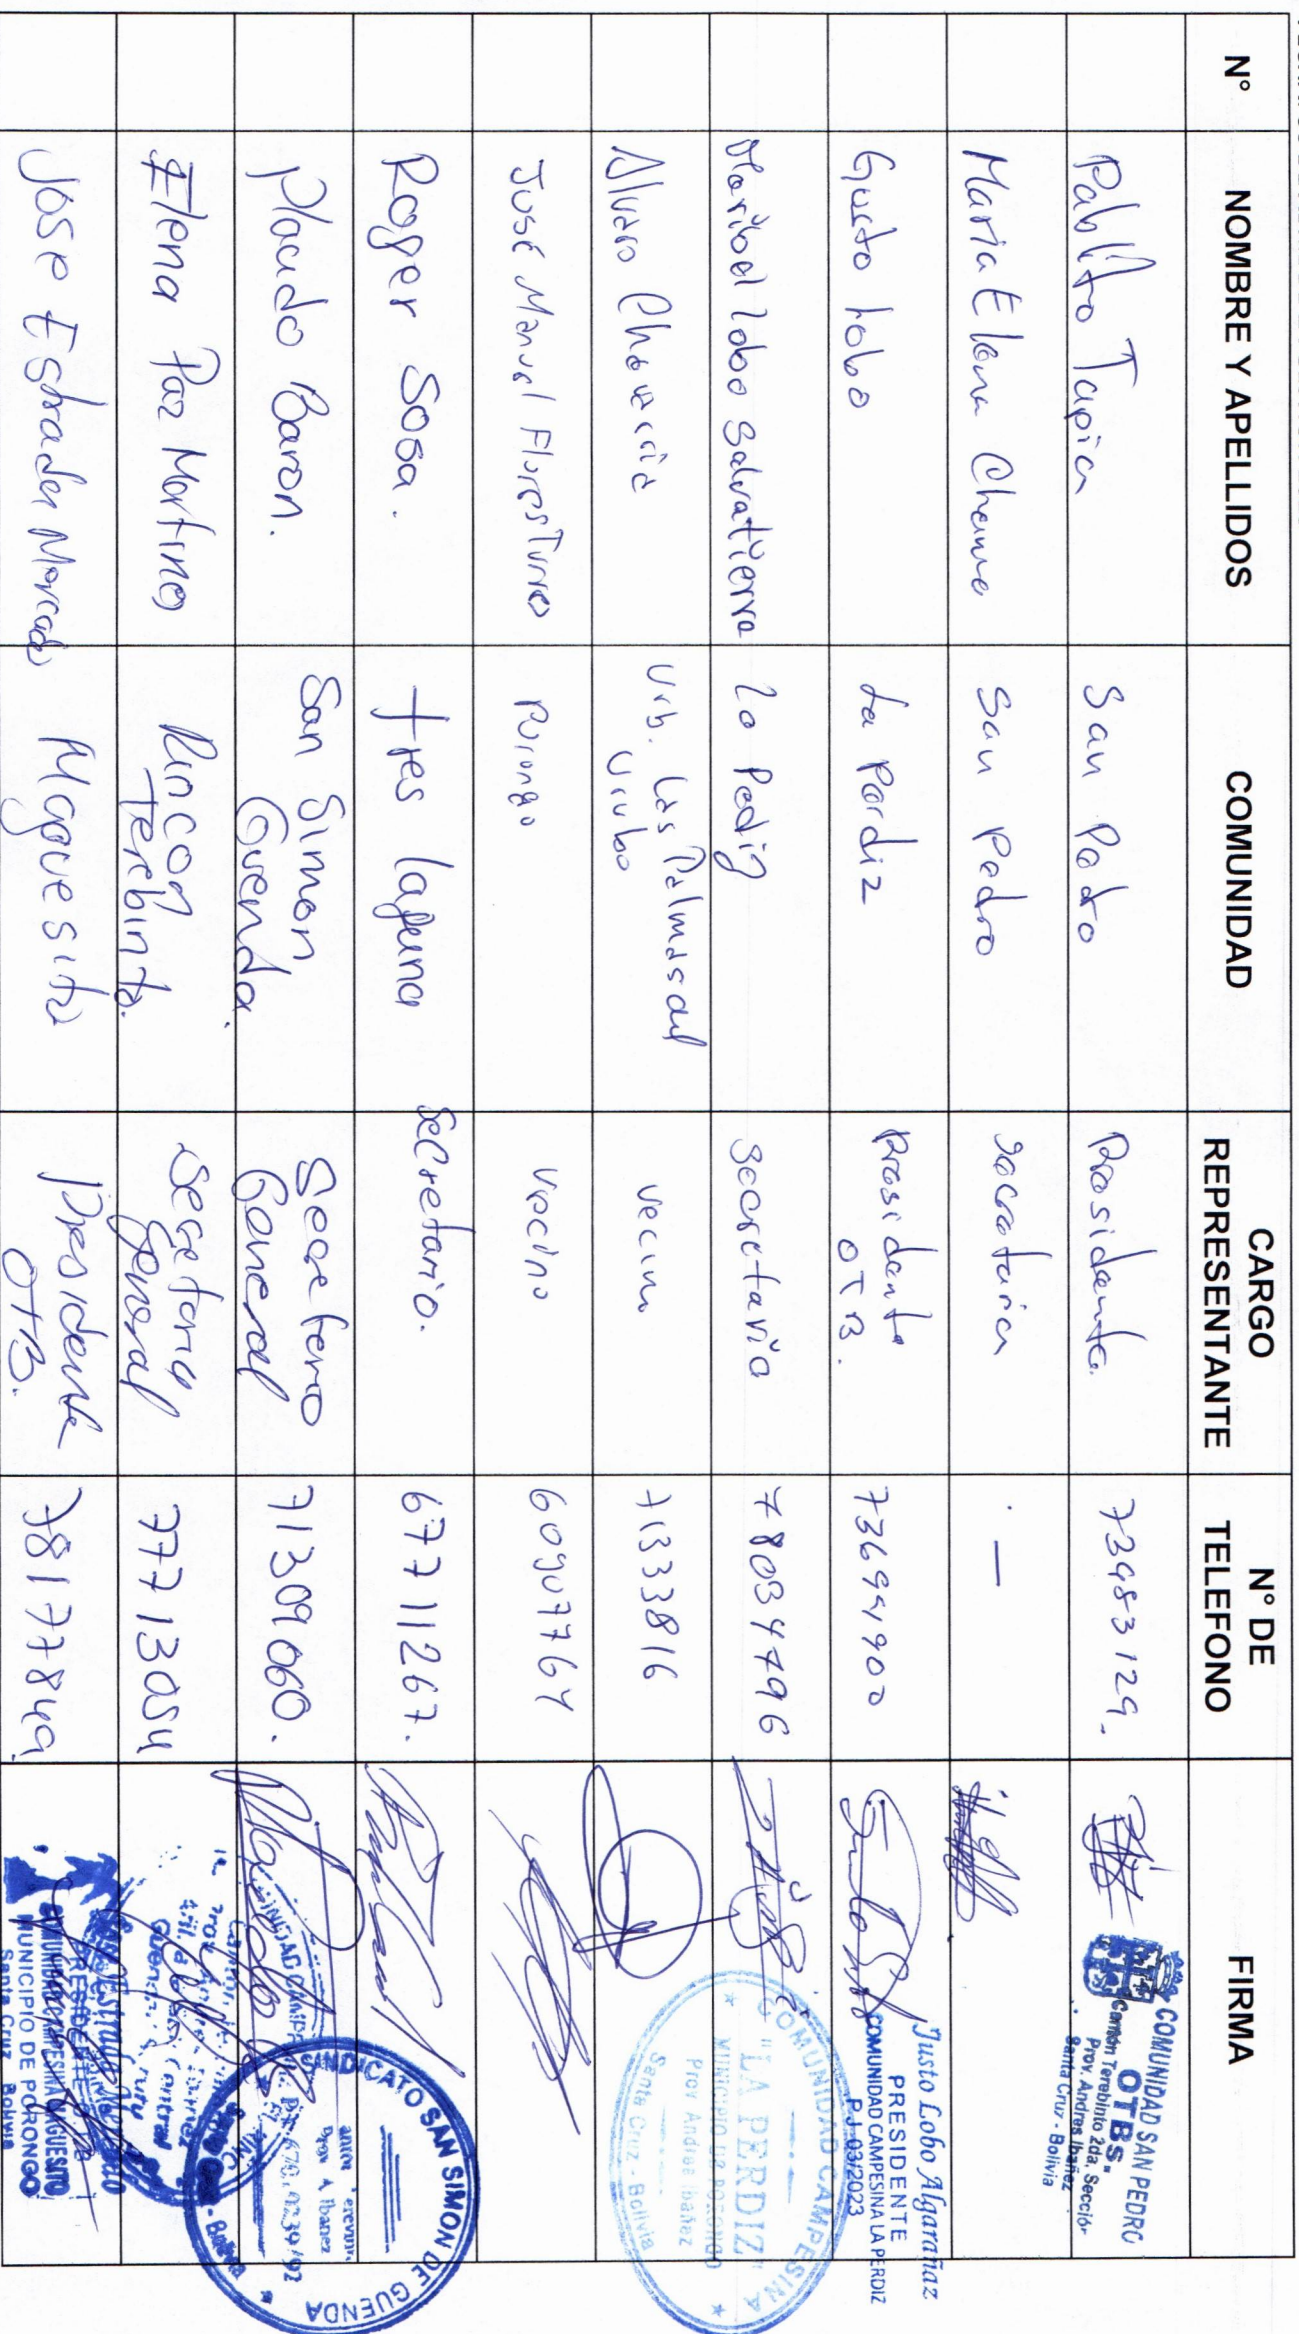 N° NOMBRE Y APELLIDOS COMUNIDAD CARGO REPRESENTANTE N° DE TELEFONO FIRMA
Pablito Tapia San Pedro Presidente 73983129.
COMUNIDAD SAN PEDRO
OTBS.
Canton Terebinto 2da. Sección
Prov. Andres Ibañez
Santa Cruz - Bolivia
Maria Elena Chame San Pedro secretaria . —
Gusto Lobo La Perdiz Presidente
OTB.
73699900
Justo Lobo Algarañaz
PRESIDENTE
COMUNIDAD CAMPESINA LA PERDIZ
P.J. 03/2023
Maribel lobo Salvatierra La Pediz Secretaria 78034796
COMUNIDAD CAMPESINA
"LA PERDIZ"
MUNICIPIO DE PORONGO
Prov. Andres Ibañez
Santa Cruz - Bolivia
Alvaro Chavarria Urb. Las Palmas del
Urubo
vecino 71333816
José Manuel Flores Porongo Vecino 60907764
Roger Sosa. tres laguna Secretario. 67711267.
Placido Baron. San Simon
Guenda.
Secretario
General
71309060.
SINDICATO SAN SIMON DE GUENDA
Elena Paz Martinez Rincon
Terebinto.
Secetaria
general
77713054
Jose Estrada Mercado Maguesito Presidente
OTB.
78177849.
PRESIDENTE
COMUNIDAD CAMPESINA MAGUESITO
MUNICIPIO DE PORONGO
Santa Cruz - Bolivia